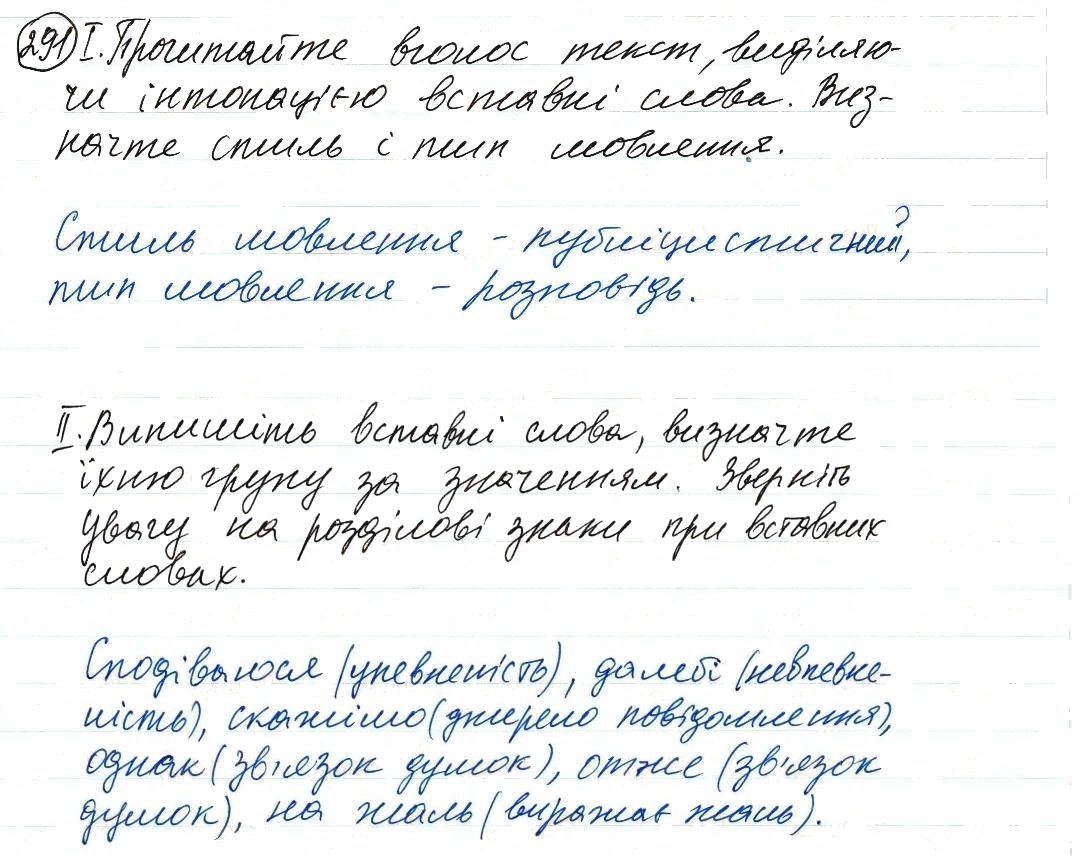 291 I. Прочитайте вголос текст, виділяю-
чи інтонацією вставні слова. Виз-
начте стиль і тип мовлення.
Стиль мовлення - публіцистичний,
тип мовлення - розповідь.
II. Випишіть вставні слова, визначте
їхню групу за значенням. Зверніть
увагу на розділові знаки при вставних
словах.
Сподіваюся (упевненість), далебі (невпевне-
ність), скажімо (джерело повідомлення),
однак (зв'язок думок), отже (зв'язок
думок), на жаль (виражає жаль).